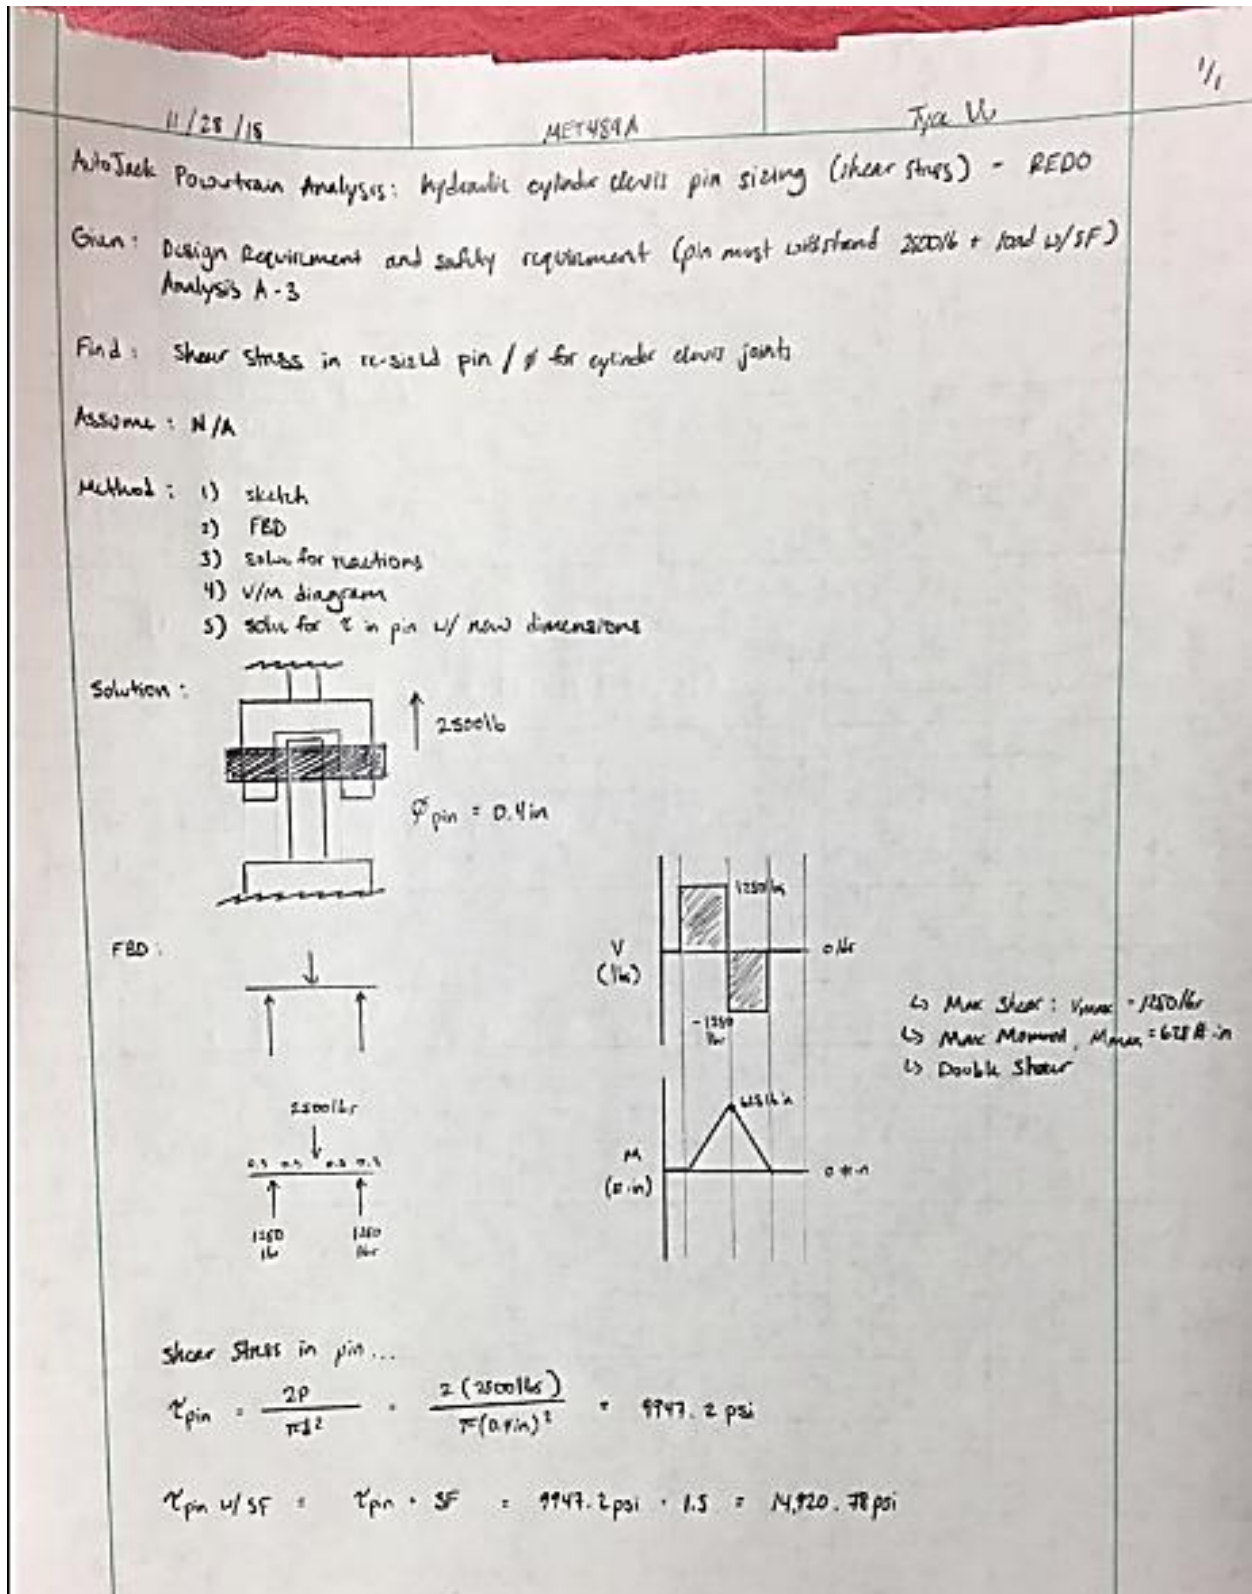 1/1
11/28/18 MET489A
AutoJack Powertrain Analysis: hydraulic cylinder clevis pin sizing (shear stress) - REDO
Given: Design Requirement and safety requirement (pin must withstand 2500lb + load w/SF)
Analysis A-3
Find: Shear stress in re-sized pin / ø for cylinder clevis joints
Assume: N/A
Method: 1) sketch
2) FBD
3) solve for reactions
4) V/M diagram
5) solve for τ in pin w/ new dimensions
Solution:
2500lb
φpin = 0.4in
1250 lbs
FBD:
V
(lbs)
0 lbs
-1250
lbs
↳ Max Shear: Vmax = 1250lbs
↳ Max Moment, Mmax = 625 #·in
↳ Double Shear
2500lbs
625 lb in
M
(#·in)
0 #·in
0.5 0.5
1250 1250
lbs lbs
Shear Stress in pin...
τpin = 2P / πd² = 2(2500lbs) / π(0.4in)² = 9947.2 psi
τpin w/SF = τpin · SF = 9947.2psi · 1.5 = 14,920.78psi